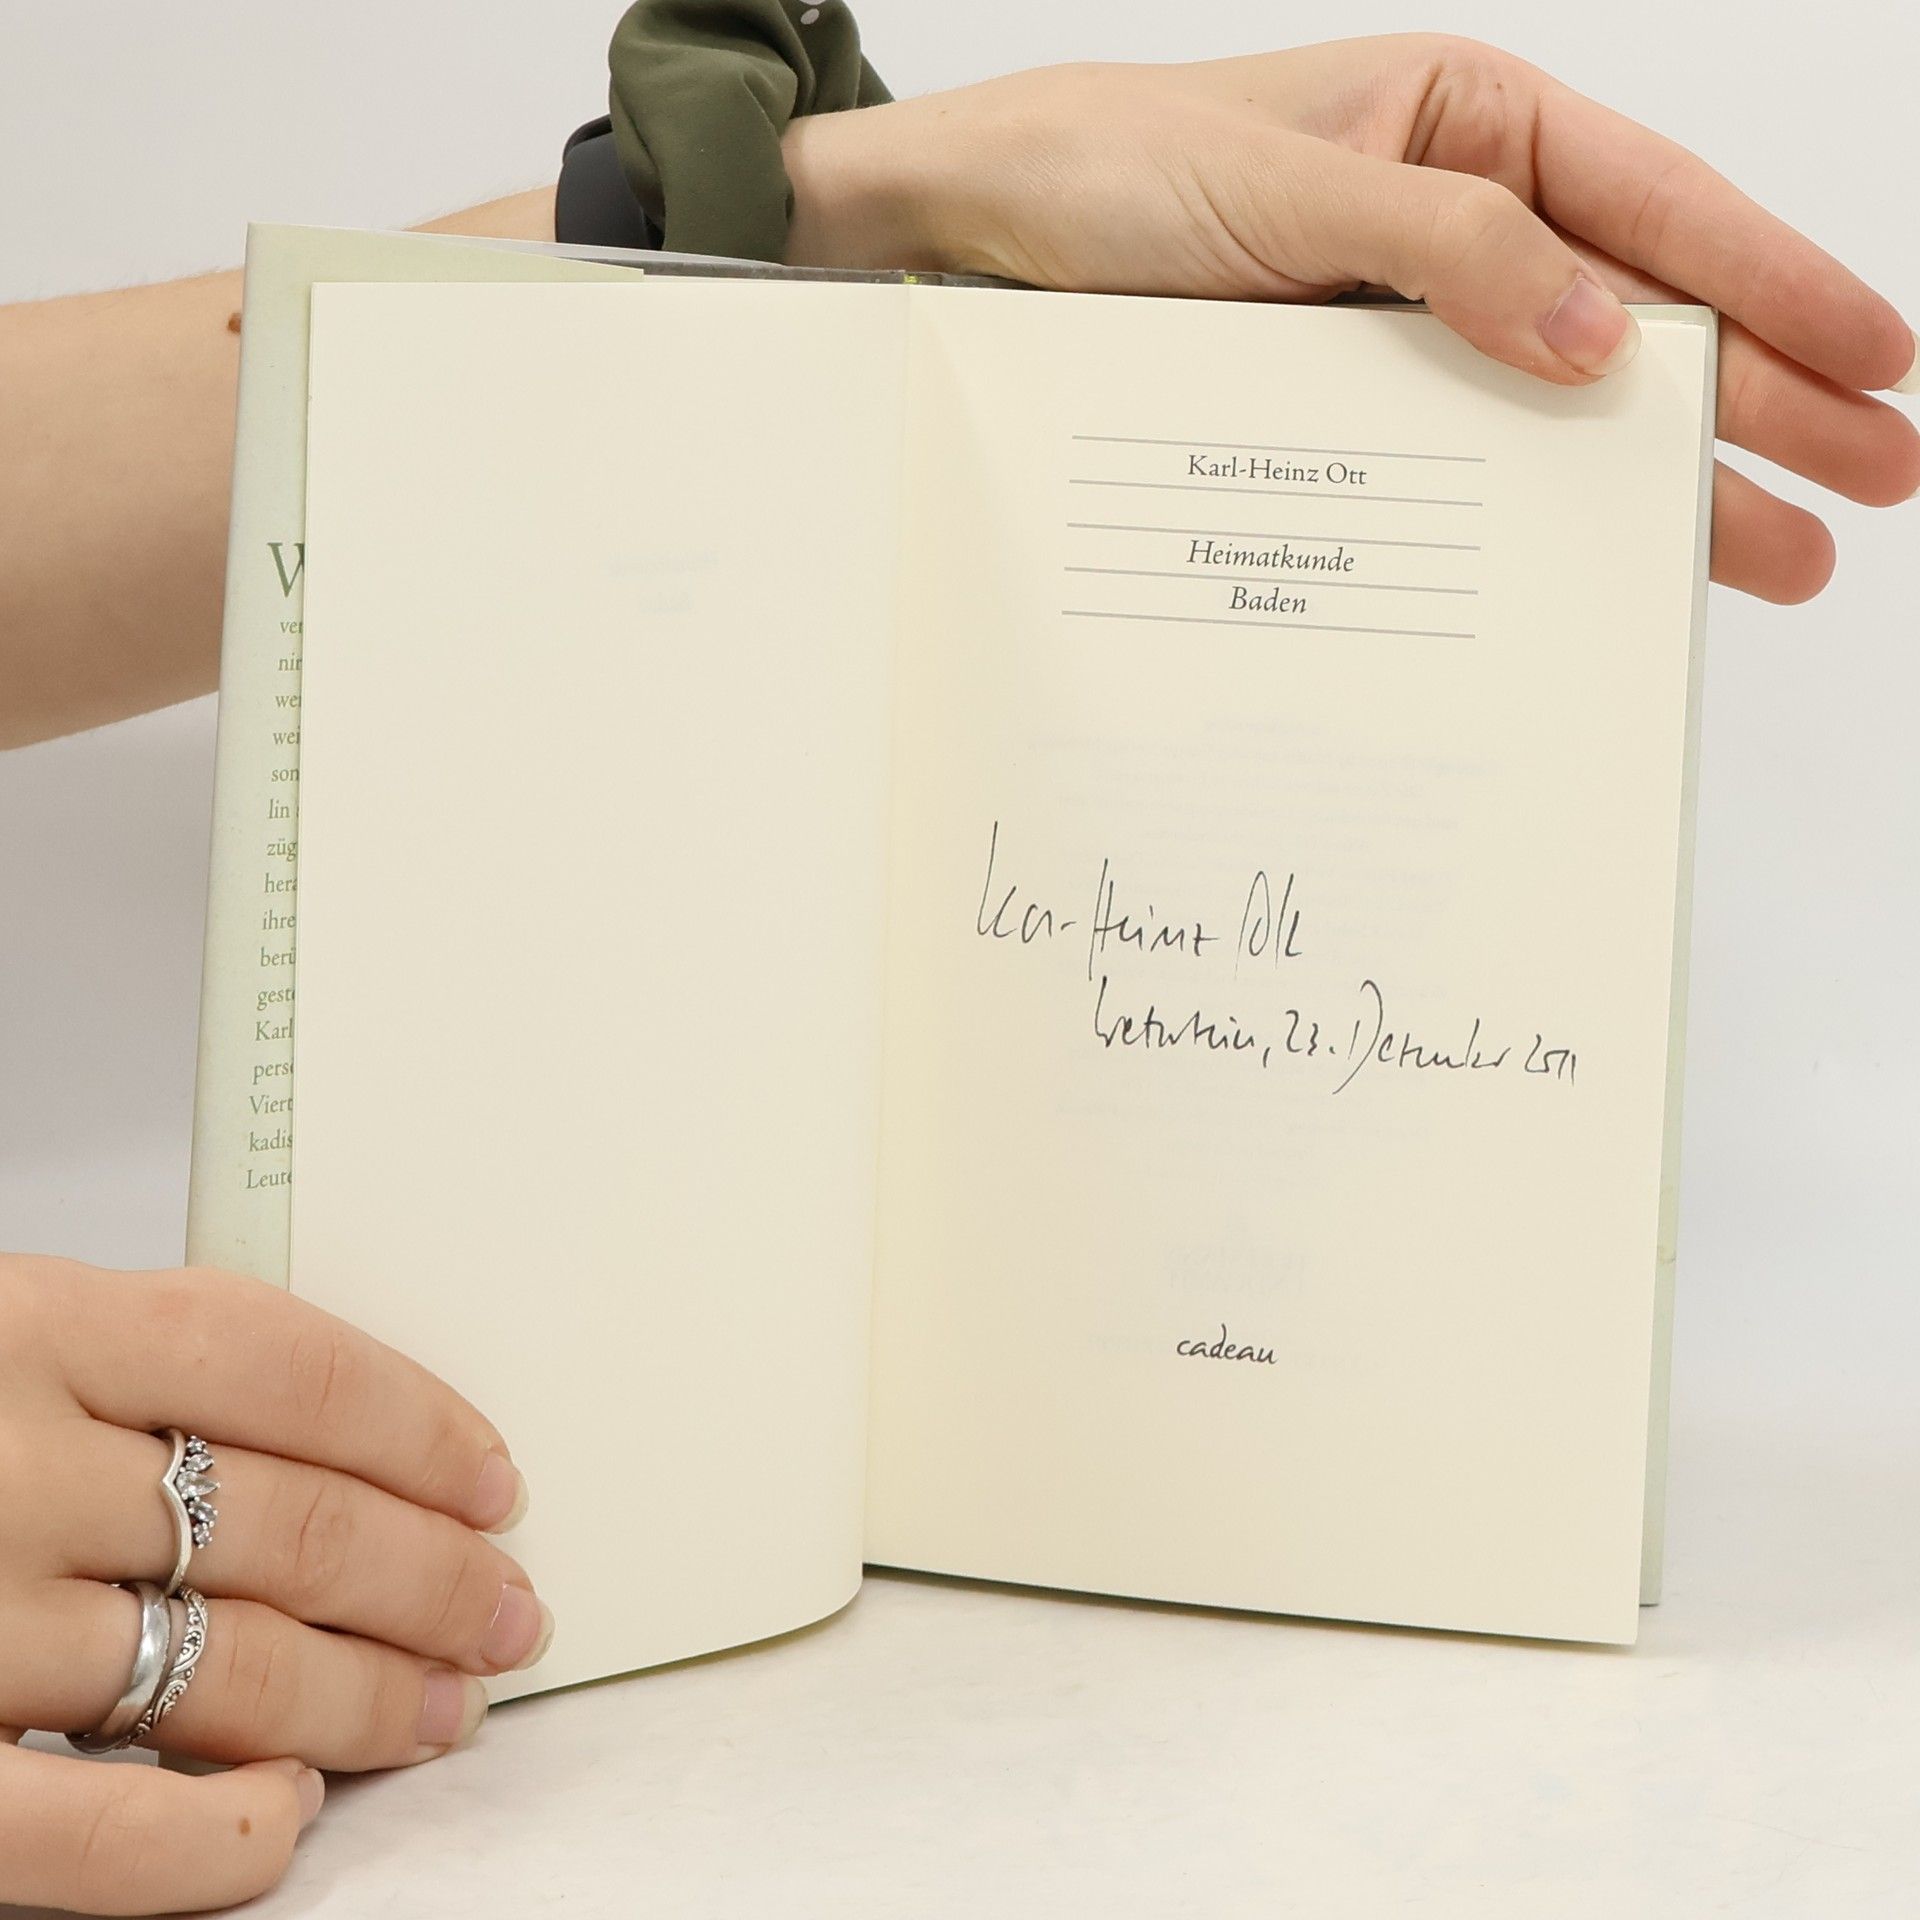 W
ver
nir
wer
wei
son
lin
züg
hera
ihre
berü
geste
Karl
perse
Viert
kadis
Leute
Karl-Heinz Ott
Heimatkunde
Baden
Karl-Heinz Ott
23. Dezember 2011
cadeau